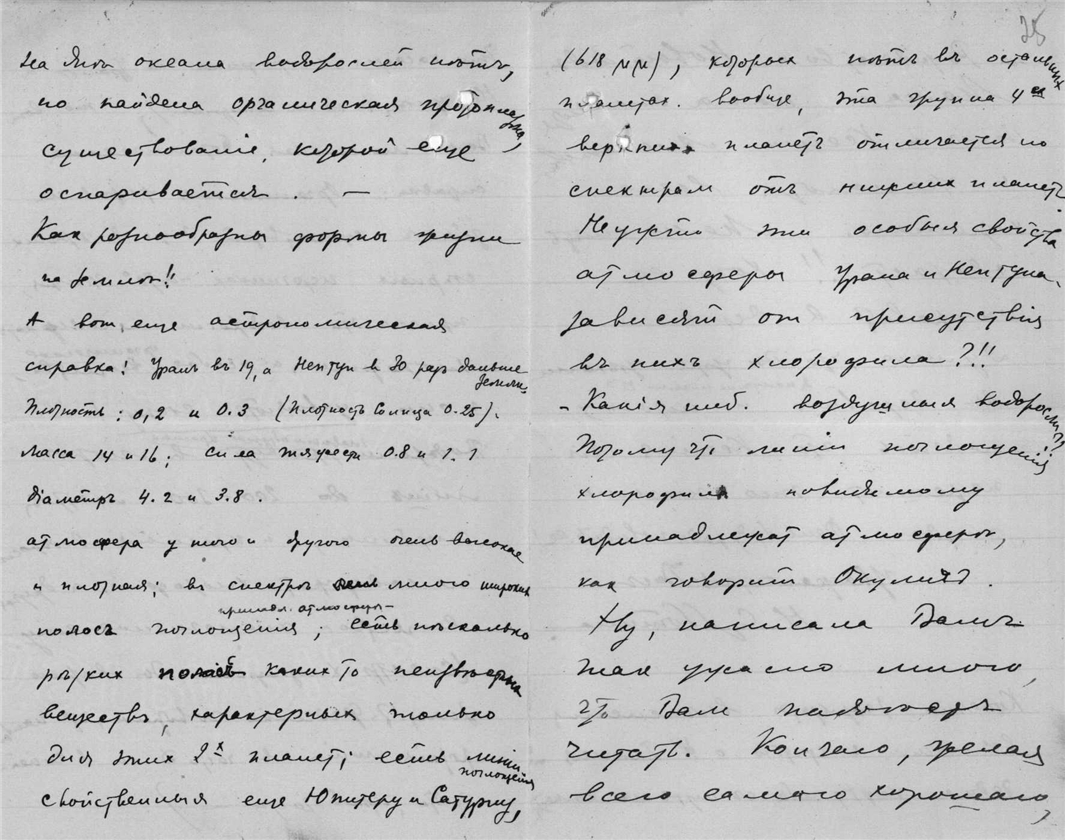 На днѣ океана водорослей нѣтъ,
но найдена органическая протоплазма,
существованіе, которой еще
оспаривается. —
Как разнообразны формы жизни
на Землѣ!!
А вот, еще астрономическая
справка! Уранъ въ 19, а Нептун в 30 раз дальше
Земли.
Плотность: 0,2 и 0.3 (Плотность Солнца 0.25).
Масса 14 и 16; сила тяжести 0.8 и 1.1
Діаметръ 4.2 и 3.8
атмосфера у того и другого очень высокая
и плотная; въ спектрѣ много широких
принадл. атмосферѣ
полосъ поглощенія; есть нѣсколько
рѣзких полосъ каких то неизвѣстных
веществъ, характерных только
для этих 2х планет; есть линіи
поглощенія
свойственныя еще Юпитеру и Сатурну,
25
(618 μμ), которых нѣтъ въ остальных
планетах. Вообще, эта группа 4ех
верхних планетъ отличается по
спектрам отъ нижних планетъ
Неужто эти особыя свойства
атмосферы Урана и Нептуна
зависят от присутствія
въ нихъ хлорофила?!!
- Какія ниб. воздушныя водоросли?!
Потому что линіи поглощенія
хлорофила повидимому
принадлежат атмосферѣ,
как говорит
Ну, написала Вамъ
так ужасно много,
что Вам надоѣстъ
читать. Кончаю, желая
всего самого хорошаго,